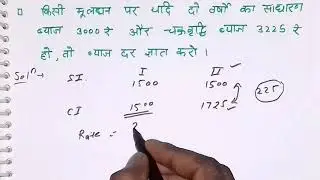 □ किसी मूलधन पर यदि दो वर्षो का साधारण
ब्याज 3000 ₹ और चक्रवृद्धि ब्याज 3225 ₹
हो, तो ब्याज दर ज्ञात करो ।
Solⁿ → I II
SI 1500 1500
225
CI 1500 1725
Rate = 2